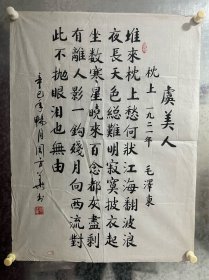 虞美人
枕上 一九二一年 毛泽东
堆来枕上愁何状江海翻波浪
夜长天色总难明寂寞披衣起
坐数寒星晓来百念都灰尽剩
有离人影一钩残月向西流对
此不抛眼泪也无由
辛巳年畅月周方